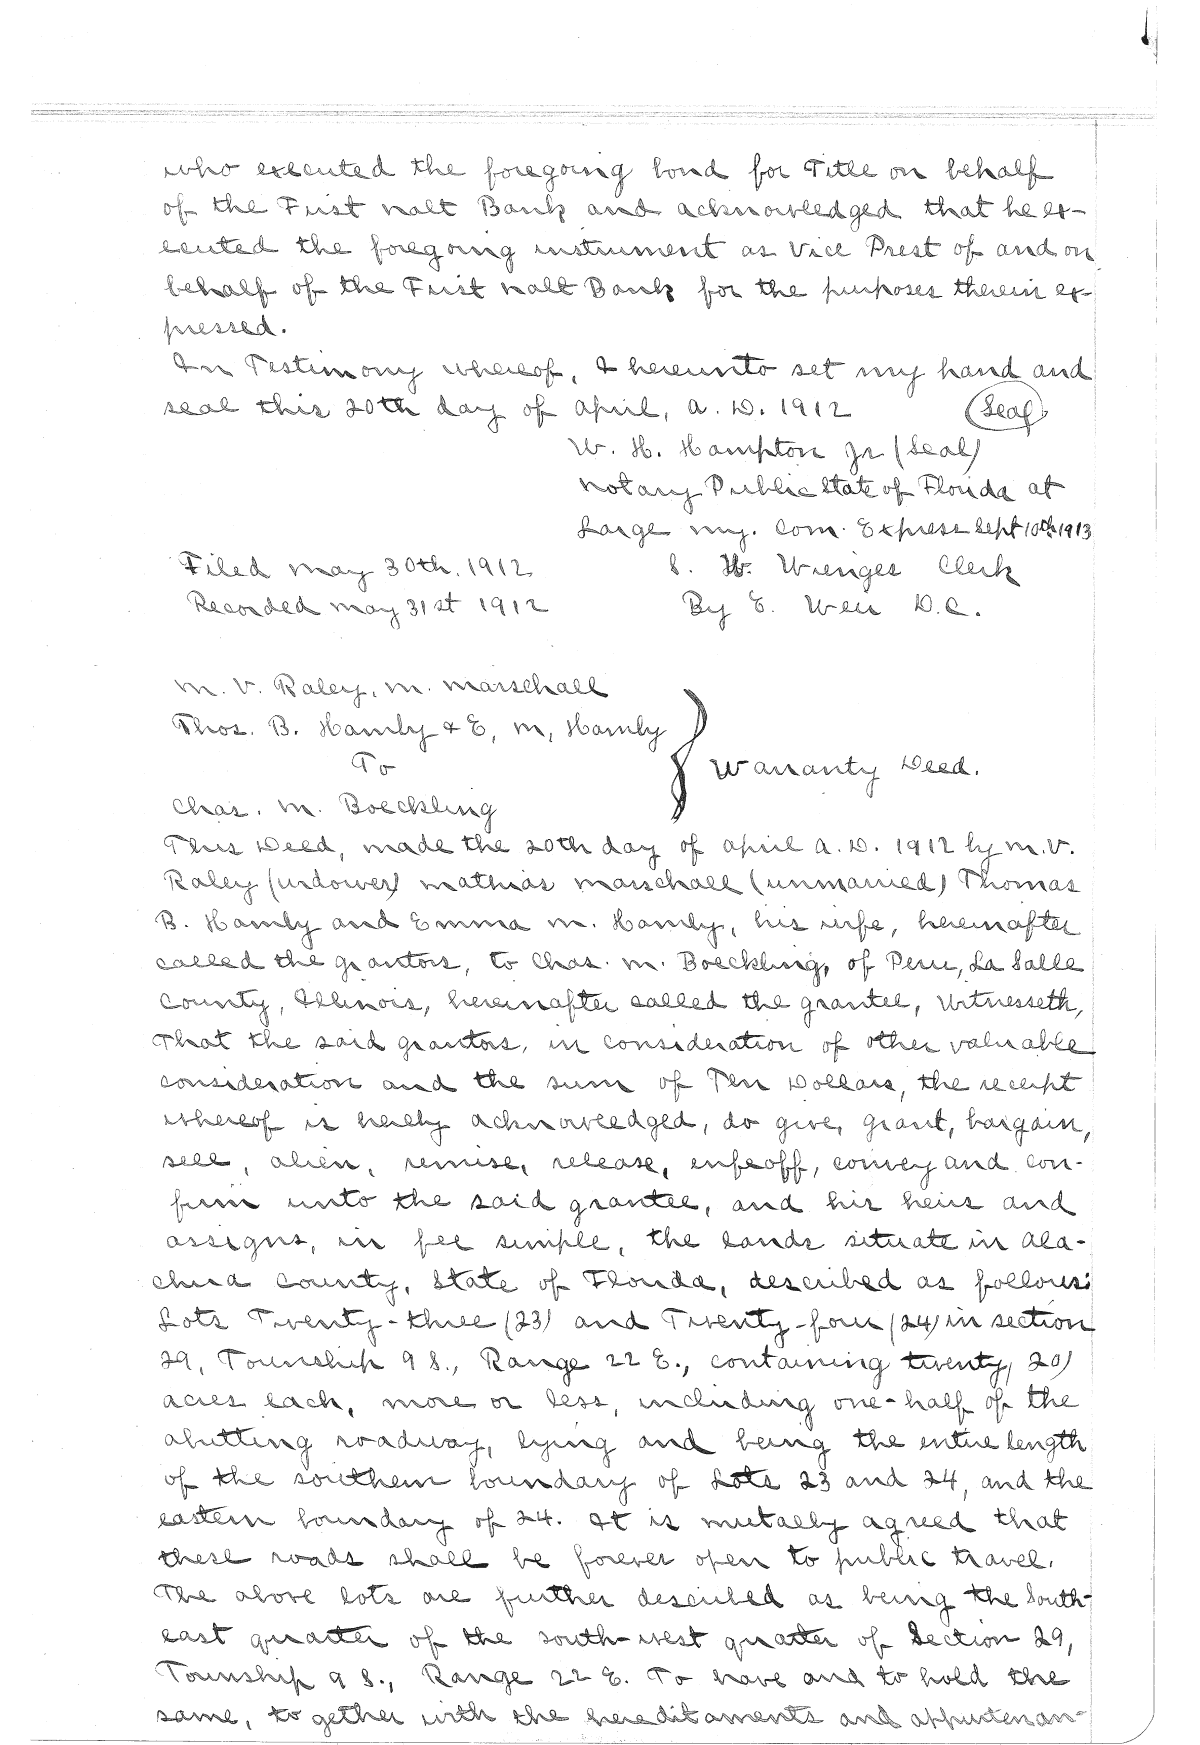 who executed the foregoing bond for Title on behalf
of the First Natl Bank and acknowledged that he ex-
ecuted the foregoing instrument as Vice Prest of and on
behalf of the First Natl Bank for the purposes therein ex-
pressed.
In Testimony whereof, I hereunto set my hand and
seal this 20th day of April, A. D. 1912 (Seal)
W. H. Hampton Jr (Seal)
Notary Public State of Florida at
Large My. Com. Express Sept 10th 1913
Filed May 30th, 1912 S. H. Wienges Clerk
Recorded May 31st 1912 By E. Weir D.C.
M. V. Raley, M. Marschall
Thos. B. Hamly & E, M, Hamly
To
Warranty Deed.
Chas. M. Boeckling
This Deed, made the 20th day of April A. D. 1912 by M.V.
Raley (widower) Mathias Marschall (unmarried) Thomas
B. Hamly and Emma M. Hamly, his wife, hereinafter
called the grantors, to Chas. M. Boeckling, of Peru, La Salle
County, Illinois, hereinafter called the grantee, Witnesseth,
That the said grantors, in consideration of other valuable
consideration and the sum of Ten Dollars, the receipt
whereof is hereby acknowledged, do give, grant, bargain,
sell, alien, remise, release, enfeoff, convey and con-
firm unto the said grantee, and his heirs and
assigns, in fee simple, the lands situate in Ala-
chua County, State of Florida, described as follows:
Lots Twenty-three (23) and Twenty-four (24) in section
29, Township 9 S., Range 22 E., containing twenty, 20)
acres each, more or less, including one-half of the
abutting roadway, lying and being the entire length
of the southern boundary of Lots 23 and 24, and the
eastern boundary of 24. It is mutally agreed that
these roads shall be forever open to public travel.
The above lots are further described as being the South-
east quarter of the south-west quarter of Section 29,
Township 9 S., Range 22 E. To have and to hold the
same, together with the hereditaments and appurtenan-